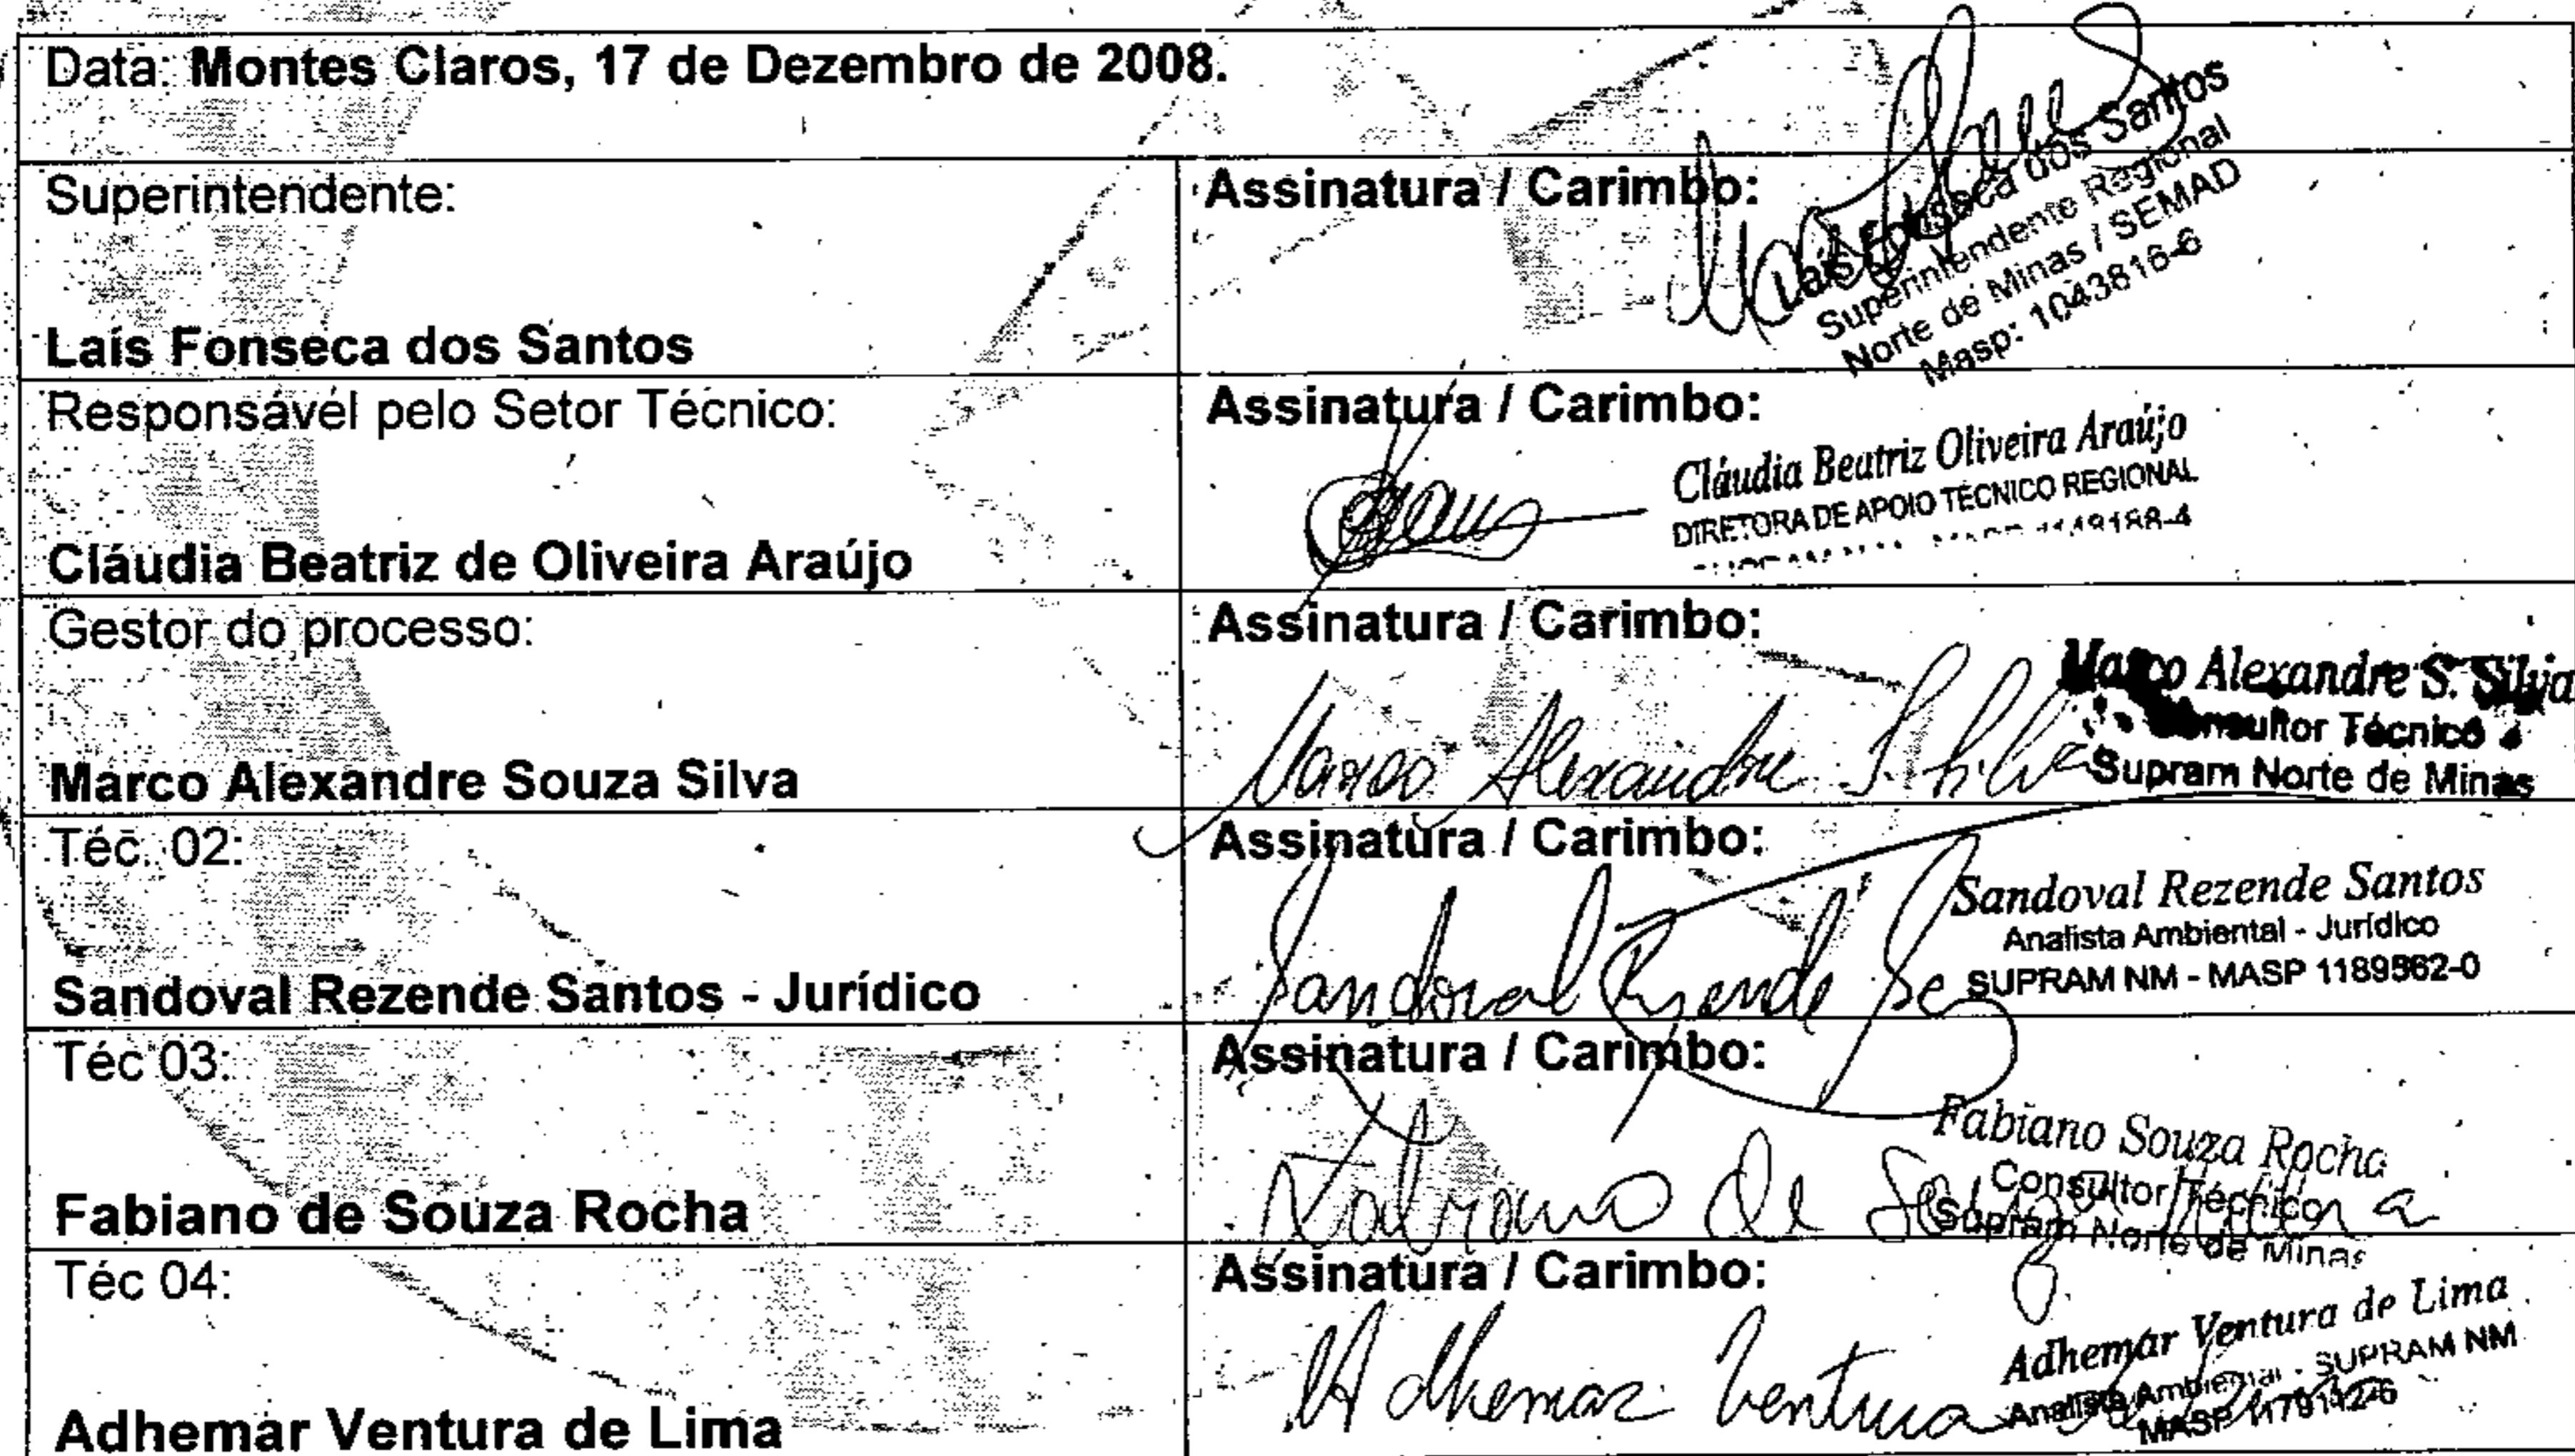 Data: Montes Claros, 17 de Dezembro de 2008.
Superintendente:
Laís Fonseca dos Santos
Assinatura / Carimbo:
Laís Fonseca dos Santos
Superintendente Regional
Norte de Minas / SEMAD
Masp: 1043816-6
Responsável pelo Setor Técnico:
Cláudia Beatriz de Oliveira Araújo
Assinatura / Carimbo:
Cláudia Beatriz Oliveira Araújo
DIRETORA DE APOIO TÉCNICO REGIONAL
Gestor do processo:
Marco Alexandre Souza Silva
Assinatura / Carimbo:
Marco Alexandre S. Silva
Marco Alexandre S. Silva
Consultor Técnico
Supram Norte de Minas
Téc. 02:
Sandoval Rezende Santos - Jurídico
Assinatura / Carimbo:
Sandoval Rezende
Sandoval Rezende Santos
Analista Ambiental - Jurídico
SUPRAM NM - MASP 1189562-0
Téc 03:
Fabiano de Souza Rocha
Assinatura / Carimbo:
Fabiano de Souza Rocha
Fabiano Souza Rocha
Consultor Técnico
Supram Norte de Minas
Téc 04:
Adhemar Ventura de Lima
Assinatura / Carimbo:
Adhemar Ventura de Lima
Adhemar Ventura de Lima
Analista Ambiental - SUPRAM NM
MASP 1179112-6